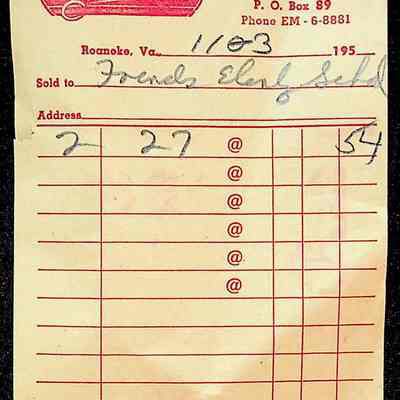 P. O. Box 89
Phone EM - 6-8881
Roanoke, Va. 11 23 195
Sold to Friends Elem Schol
Address
2 27 @ 54
@
@
@
@
@